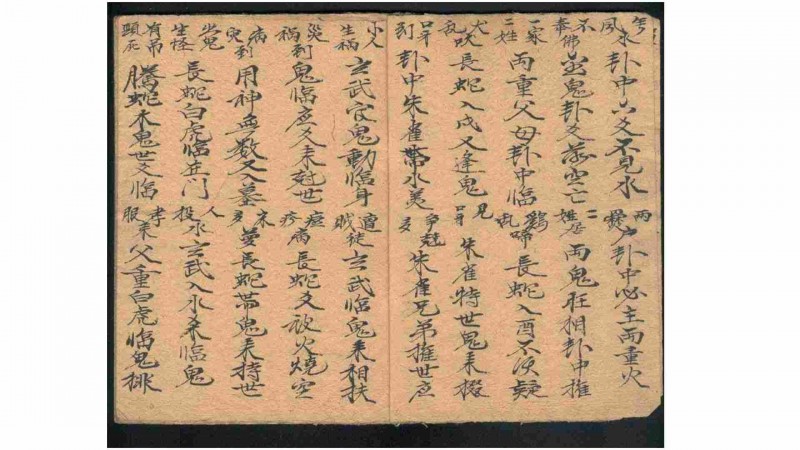 風水卦中六爻不見水
户卦中必主両重火
不奉佛金鬼卦爻落空亡
二姓居両鬼旺相卦中推
一家二姓両重父母卦中临
鷄乱啼長蛇入酉不須疑
犬吠乱長蛇入戌又逢鬼
見口舌朱雀持世鬼来掇
口舌到卦中朱雀帶水美
多争競朱雀兄弟推世应
小人生祸玄武官鬼動临身
遭贼徒玄武临鬼来相扶
災祸到鬼临应爻来尅世
痘疹病長蛇爻放火燒空
病來到用神無数又入墓
多夢長蛇帶鬼来持世
出鬼生怪長蛇白虎临门
人投水玄武入水来临鬼
有吊頸死腾蛇木鬼世爻临
孝服来父重白虎临鬼排